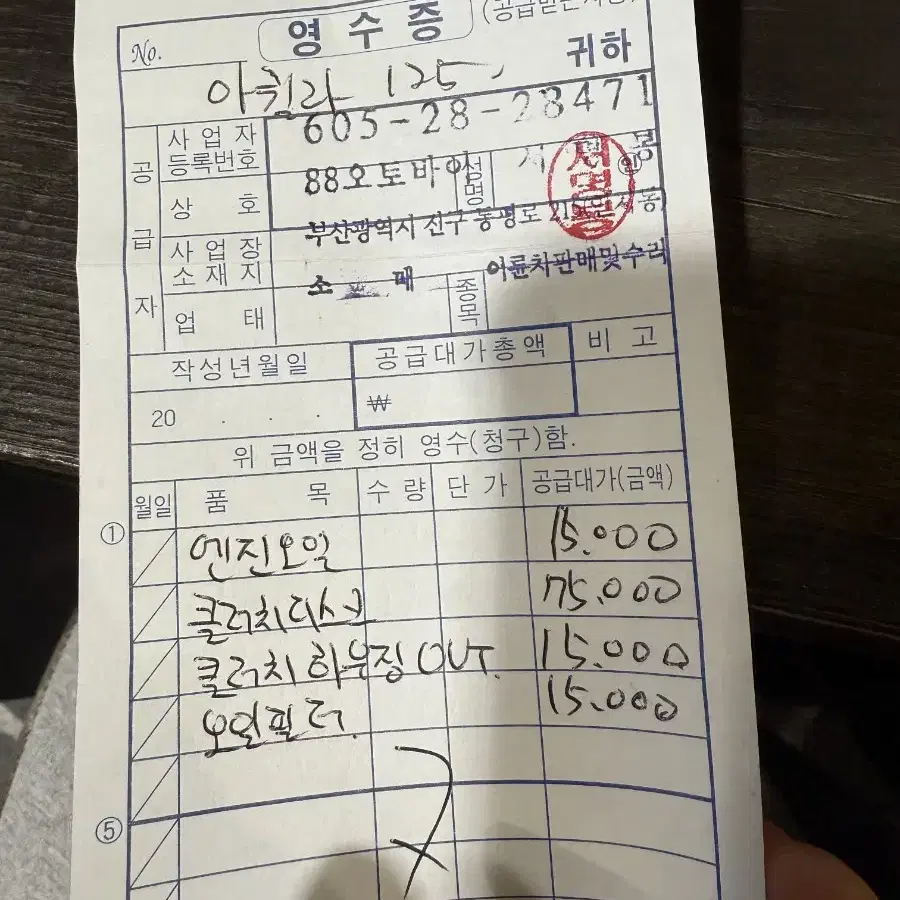 영수증 (공급받는자용)
No. 귀하
아퀼라 125
공급자
사업자등록번호 605-28-28471
상호 88오토바이 성명 인
사업장소재지 부산광역시 진구 동평로
업태 소매 종목 이륜차판매및수리
작성년월일 공급대가총액 비고
20 . . . ₩
위 금액을 정히 영수(청구)함.
월일 품목 수량 단가 공급대가(금액)
① 엔진오일 15.000
클러치디스크 75.000
클러치하우징 OUT. 15.000
오일필터. 15.000
⑤